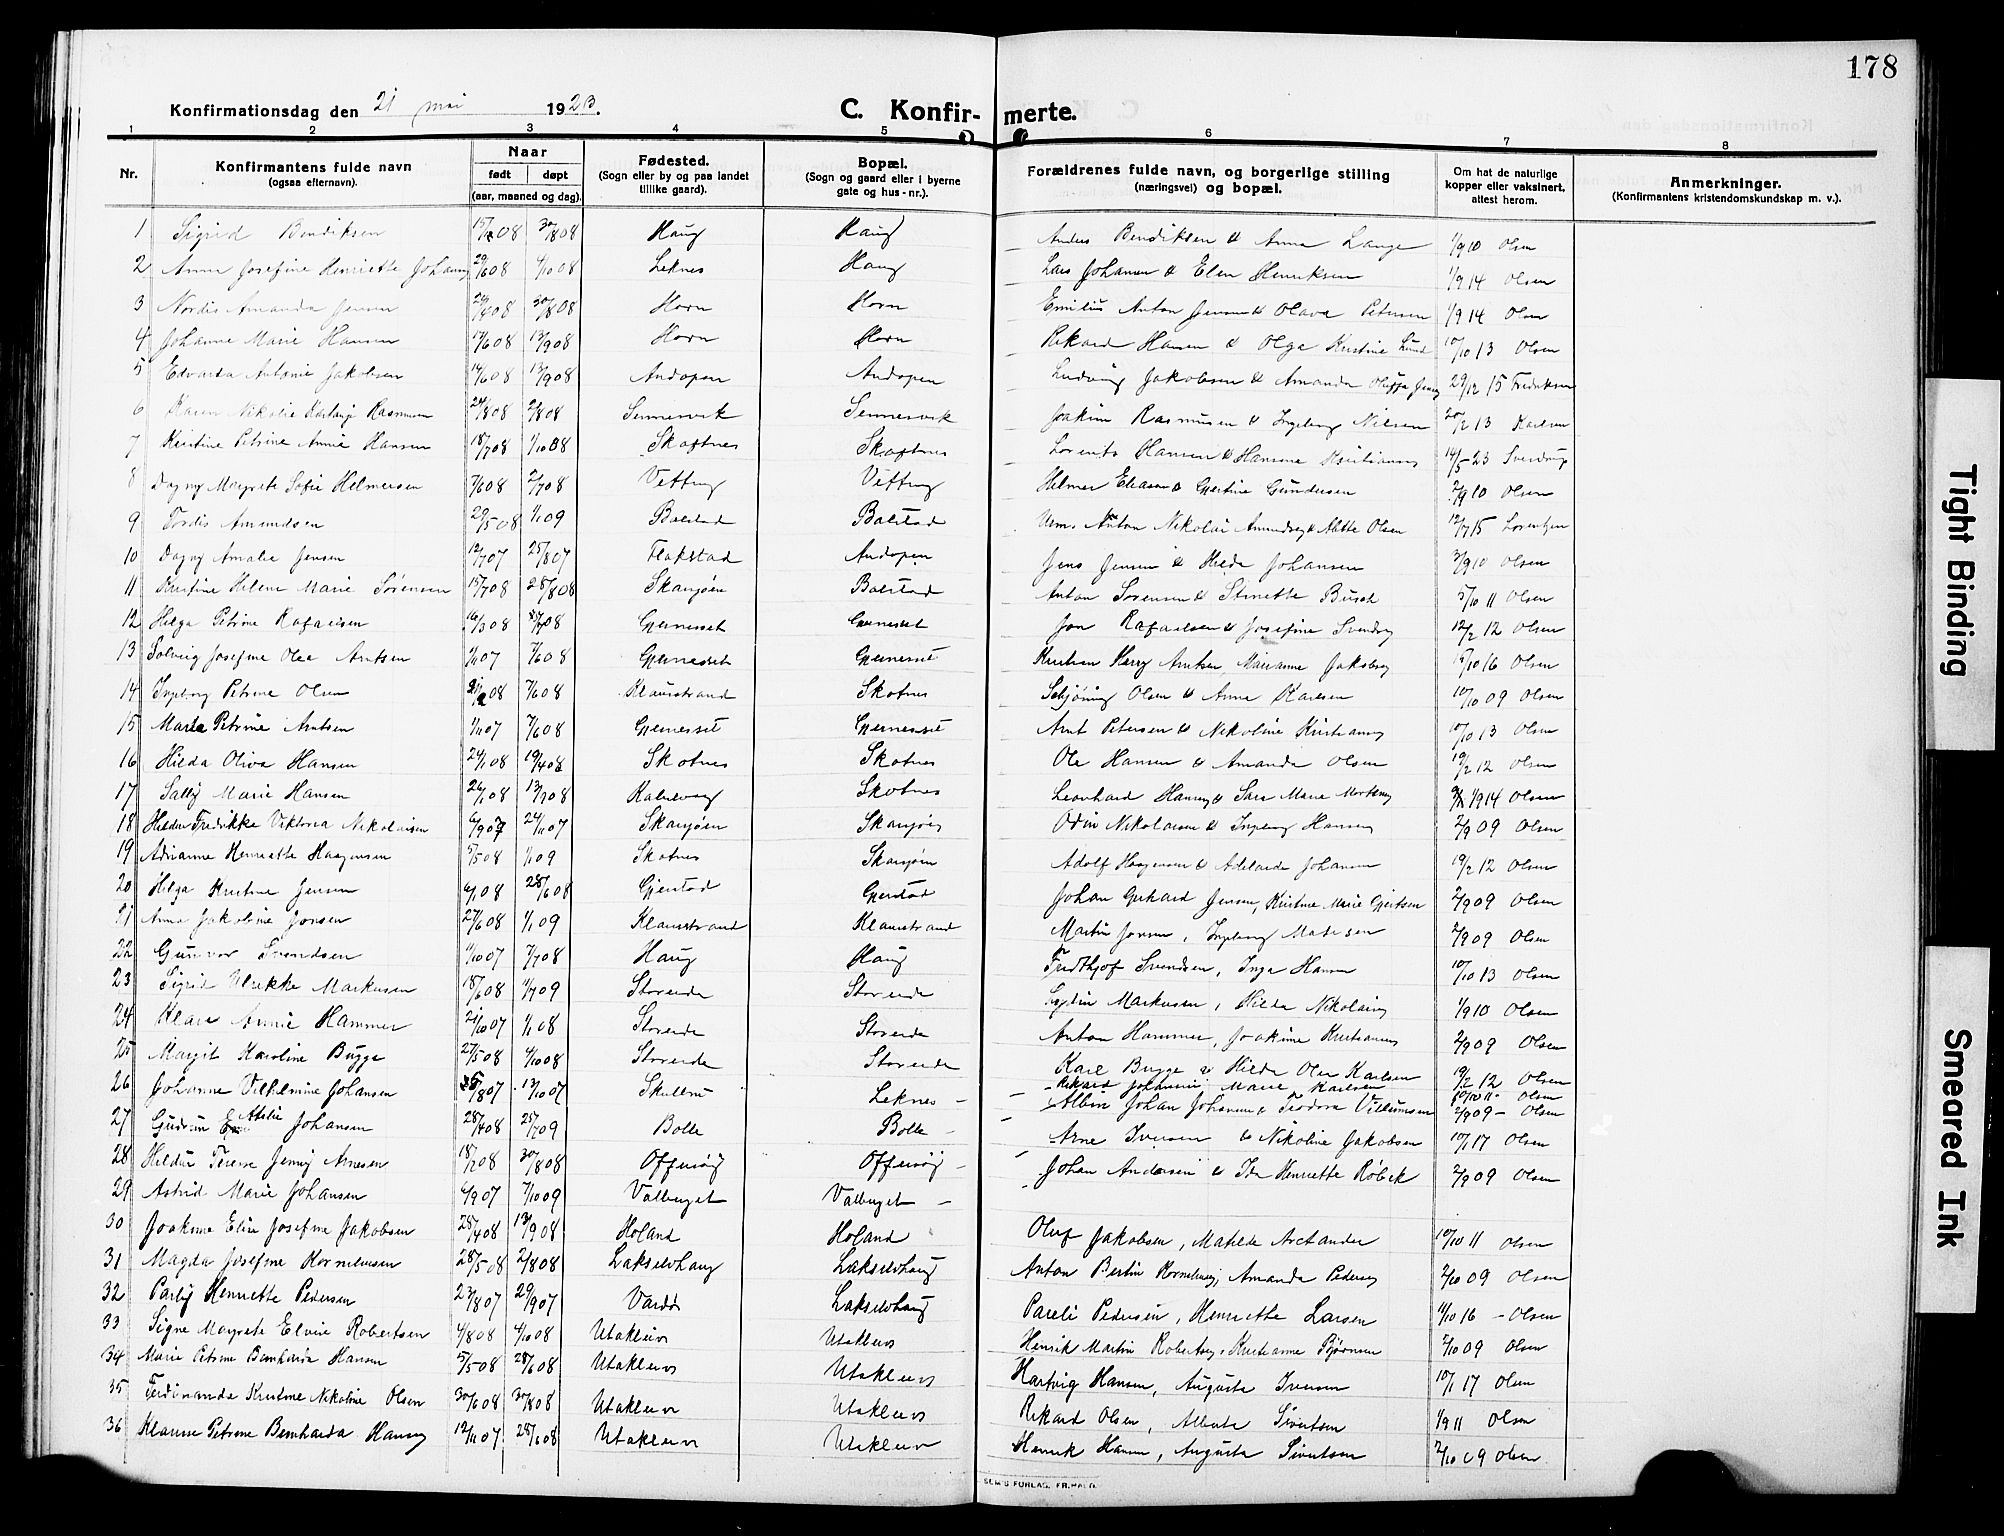 178
Konfirmationsdag den 21 mai 1923.
C. Konfir- merte.
1 2 3 4 5 6 7 8
Nr.
Konfirmantens fulde navn
(ogsaa efternavn).
Naar
født døpt
(aar, maaned og dag).
Fødested.
(Sogn eller by og paa landet
tillike gaard).
Bopæl.
(Sogn og gaard eller i byerne
gate og hus-nr.).
Forældrenes fulde navn, og borgerlige stilling
(næringsvei) og bopæl.
Om hat de naturlige
kopper eller vaksinert,
attest herom.
Anmerkninger.
(Konfirmantens kristendomskundskap m. v.).
1 Sigrid Bendiksen 08 30/8 08 Haug Haug Anders Bendiksen & Anna Lange 1/9 10 Olsen
2 Anna Josefine Henriette Johansen 29/6 08 4/10 08 Leknes Haug Lars Johansen & Elen Henriksen 1/9 14 Olsen
3 Nordis Amanda Jensen 29/4 08 30/8 08 Horn Horn Emilius Anton Jensen & Olava Petersen 1/9 14 Olsen
4 Johanne Marie Hansen 17/6 08 13/9 08 Horn Horn Rikard Hansen & Olga Kristine Lund 10/10 13 Olsen
5 Edvarda Antonie Jakobsen 14/6 08 13/9 08 Andopen Andopen Ludvig Jakobsen & Amanda 29/12 15 Fredriksen
6 Karen Nikolie Rasmussen 24/1 08 2/8 08 Sennesvik Sennesvik Joakim Rasmussen & Ingeborg Nilsen 20/2 13 Karlsen
7 Kristine Petrine Annie Hansen 18/7 08 1/10 08 Skaftnes Skaftnes Lorents Hansen & Hansine Kristiansen 14/5 23 Sverdrup
8 Dagny Margrete Sofie Helmersen 7/6 08 2/7 08 Vetting Vetting Helmer Eliasen & Gjertine Gundersen 2/9 10 Olsen
9 Tordis Amundsen 29/5 08 1/1 09 Balstad Balstad Anton Nikolai Amundsen & Mette Olsen 12/7 15 Lorentzen
10 Dagny Amalie Jensen 12/7 07 25/8 07 Flakstad Andopen Jens Jensen & Hilda Johansen 3/9 10 Olsen
11 Kristine Helene Marie Sørensen 15/7 08 28/8 08 Skarsjøen Balstad Anton Sørensen & Stinette Busch 5/10 11 Olsen
12 Helga Petrine Rafaelsen 16/3 08 08 Gjernesset Gjernesset Jon Rafaelsen & Josefine Svendsen 12/2 12 Olsen
13 Solveig Josefine Olea Arntsen 1/11 07 7/6 08 Gjernesset Gjernesset Kristian Harry Arntsen, Marianne Jakobsen 15/10 16 Olsen
14 Ingeborg Petrine Olsen 08 7/6 08 Klausstrand Skotnes Schjøning Olsen & Anna Karlsen 10/10 09 Olsen
15 Marie Petrine Arntsen 1/11 07 7/6 08 Gjernesset Gjernesset Arnt Petersen & Nikoline Kristiansen 10/10 13 Olsen
16 Hilda Oliva Hansen 24/1 08 19/4 08 Skotnes Skotnes Ole Hansen & Amanda Olsen 19/2 12 Olsen
17 Sally Marie Hansen 26/1 08 08 Skotnes Leonhard Hansen & Sara Marie 1/9 14 Olsen
18 Hildur Fredrikke Viktoria Nikolaisen 6/9 07 24/11 07 Skarsjøen Skarsjøen Odin Nikolaisen & Ingeborg Hansen 2/9 09 Olsen
19 Adrianne Henriette Haagensen 5/5 08 1/1 09 Skotnes Skarsjøen Adolf Haagensen & Adelaide Johansen 19/2 12 Olsen
20 Helga Kristine Jensen 6/1 08 28/6 08 Gjerstad Gjerstad Johan Gerhard Jensen, Kristine Marie Gjertsen 2/9 09 Olsen
21 Anna Jakobine Jonsen 27/6 08 1/1 09 Klausstrand Klausstrand Martin Jonsen, Ingeborg Matisen 2/9 09 Olsen
22 Gunvor Svendsen 11/10 07 7/7 08 Haug Haug Fridthjof Svendsen, Inga Hansen 10/10 13 Olsen
23 Sigrid Ulrikke Markusen 18/6 08 11/7 09 Storeide Storeide Markusen, Hilda Nikolaisen 1/9 10 Olsen
24 Klara Annie Hammer 21/10 07 1/1 08 Storeide Storeide Anton Hammer, Joakime Kristiansen 2/9 09 Olsen
25 Margit Karoline Bugge 27/5 08 4/10 08 Storeide Storeide Karl Bugge & Hilda Olea Karlsen 19/2 12 Olsen
26 Johanne Vilhelmine Johansen 8 07 13/10 07 Skullbru Leknes - Rikard Johansen, Marie Karlsen 10/10 11 - Olsen
27 Gudrun Atelie Johansen 28/4 08 25/7 09 Bolle Bolle - Albin Johan Johansen & Teodora Villumsen 2/9 09 - Olsen
28 Hildur Terese Jenny Arnesen 18/2 08 30/8 08 Offersøy Offersøy - Arne Iversen & Nikoline Jakobsen 10/1 17 Olsen
29 Astrid Marie Johansen 6/9 07 7/10 09 Valberget Valberget - Johan Andersen & Ida Henriette Røbek 2/9 09 Olsen
30 Joakime Elise Josefine Jakobsen 25/4 08 13/9 08 Holand Holand Oluf Jakobsen, Matilde Arctander 10/10 11 Olsen
31 Magda Josefine Korneliusen 28/5 08 2/8 08 Lakselvhaug Lakselvhaug Anton Bertin Korneliusen, Amanda Pedersen 2/10 09 Olsen
32 Parly Henriette Pedersen 23/8 07 29/9 07 Vardø Lakselvhaug Pareli Pedersen, Henriette Larsen 11/10 16 - Olsen
33 Signe Margrete Elvine Robertsen 4/8 08 4/10 08 Utakleiv Utakleiv Henrik Martin Robertsen, Kristianne Bjørnsen 2/10 09 Olsen
34 Marie Petrine Bernharda Hansen 5/5 08 28/6 08 Utakleiv Utakleiv Hartvig Hansen, Augusta Iversen 10/1 17 Olsen
35 Ferdinanda Kristine Nikoline Olsen 30/6 08 30/8 08 Utakleiv Utakleiv Rikard Olsen, Alberta Sivertsen 1/9 11 Olsen
36 Klarine Petrine Bernharda Hansen 12/11 07 28/6 08 Utakleiv Utakleiv Henrik Hansen, Augusta Sivertsen 2/10 09 Olsen
SEM'S FORLAG, FR.HALD.
Tight Binding
Smeared Ink